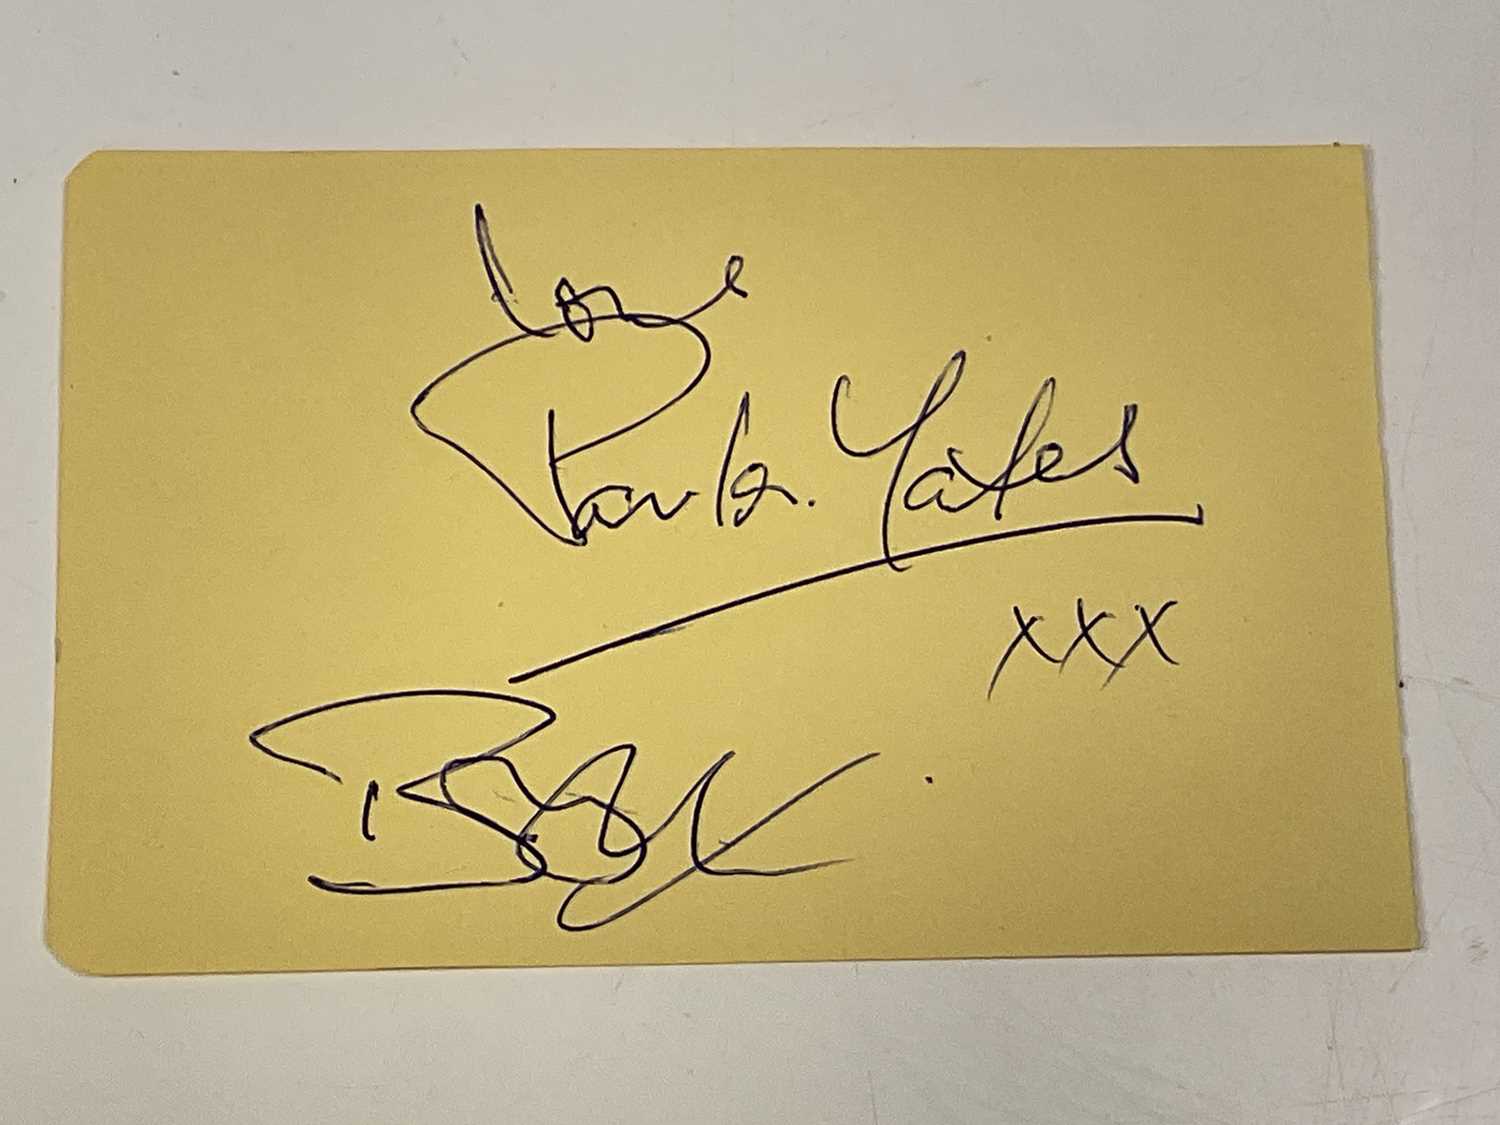 love
Paula Yates
xxx